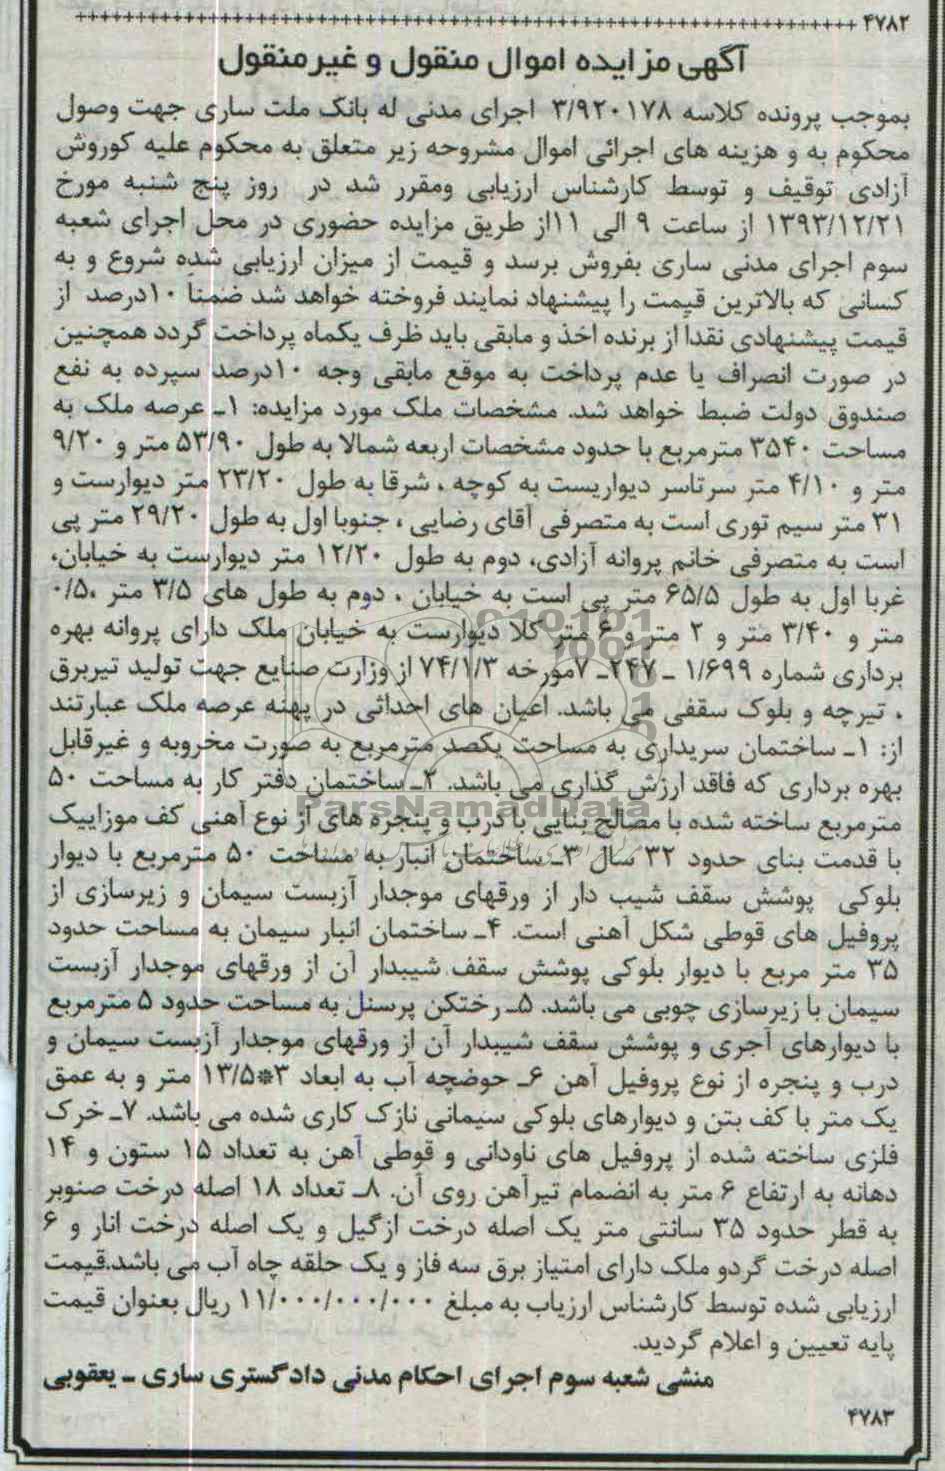 ۴۷۸۲
آگهی مزایده اموال منقول و غیرمنقول
بموجب پرونده کلاسه ۳/۹۲۰۱۷۸ اجرای مدنی له بانک ملت ساری جهت وصول
محکوم به و هزینه های اجرائی اموال مشروحه زیر متعلق به محکوم علیه کوروش
آزادی توقیف و توسط کارشناس ارزیابی ومقرر شد در روز پنج شنبه مورخ
۱۳۹۳/۱۲/۲۱ از ساعت ۹ الی ۱۱از طریق مزایده حضوری در محل اجرای شعبه
سوم اجرای مدنی ساری بفروش برسد و قیمت از میزان ارزیابی شده شروع و به
کسانی که بالاترین قیمت را پیشنهاد نمایند فروخته خواهد شد ضمناً ۱۰درصد از
قیمت پیشنهادی نقدا از برنده اخذ و مابقی باید ظرف یکماه پرداخت گردد همچنین
در صورت انصراف یا عدم پرداخت به موقع مابقی وجه ۱۰درصد سپرده به نفع
صندوق دولت ضبط خواهد شد. مشخصات ملک مورد مزایده: ۱ـ عرصه ملک به
مساحت ۳۵۴۰ مترمربع با حدود مشخصات اربعه شمالا به طول ۵۳/۹۰ متر و ۹/۲۰
متر و ۴/۱۰ متر سرتاسر دیواریست به کوچه ، شرقا به طول ۲۳/۲۰ متر دیوارست و
۳۱ متر سیم توری است به متصرفی آقای رضایی ، جنوبا اول به طول ۲۹/۲۰ متر پی
است به متصرفی خانم پروانه آزادی، دوم به طول ۱۲/۲۰ متر دیوارست به خیابان،
غربا اول به طول ۶۵/۵ متر پی است به خیابان ، دوم به طول های ۳/۵ متر ،۰/۵
متر و ۳/۴۰ متر و ۲ متر و ۶ متر کلا دیوارست به خیابان ملک دارای پروانه بهره
برداری شماره ۱/۶۹۹ ـ ۲۴۷ـ ۷مورخه ۷۴/۱/۳ از وزارت صنایع جهت تولید تیربرق
، تیرچه و بلوک سقفی می باشد. اعیان های احداثی در پهنه عرصه ملک عبارتند
از: ۱ـ ساختمان سریداری به مساحت یکصد مترمربع به صورت مخروبه و غیرقابل
بهره برداری که فاقد ارزش گذاری می باشد. ۲ـ ساختمان دفتر کار به مساحت ۵۰
مترمربع ساخته شده با مصالح بنایی با درب و پنجره های از نوع آهنی کف موزاییک
با قدمت بنای حدود ۳۲ سال ۳ـ ساختمان انبار به مساحت ۵۰ مترمربع با دیوار
بلوکی پوشش سقف شیب دار از ورقهای موجدار آزبست سیمان و زیرسازی از
پروفیل های قوطی شکل آهنی است. ۴ـ ساختمان انبار سیمان به مساحت حدود
۳۵ متر مربع با دیوار بلوکی پوشش سقف شیبدار آن از ورقهای موجدار آزبست
سیمان با زیرسازی چوبی می باشد. ۵ـ رختکن پرسنل به مساحت حدود ۵ مترمربع
با دیوارهای آجری و پوشش سقف شیبدار آن از ورقهای موجدار آزبست سیمان و
درب و پنجره از نوع پروفیل آهن ۶ـ حوضچه آب به ابعاد ۳*۱۳/۵ متر و به عمق
یک متر با کف بتن و دیوارهای بلوکی سیمانی نازک کاری شده می باشد. ۷ـ خرک
فلزی ساخته شده از پروفیل های ناودانی و قوطی آهن به تعداد ۱۵ ستون و ۱۴
دهانه به ارتفاع ۶ متر به انضمام تیرآهن روی آن. ۸ـ تعداد ۱۸ اصله درخت صنوبر
به قطر حدود ۳۵ سانتی متر یک اصله درخت ازگیل و یک اصله درخت انار و ۶
اصله درخت گردو ملک دارای امتیاز برق سه فاز و یک حلقه چاه آب می باشد.قیمت
ارزیابی شده توسط کارشناس ارزیاب به مبلغ ۱۱/۰۰۰/۰۰۰/۰۰۰ ریال بعنوان قیمت
پایه تعیین و اعلام گردید.
منشی شعبه سوم اجرای احکام مدنی دادگستری ساری ـ یعقوبی
۴۷۸۳
ParsNamadData